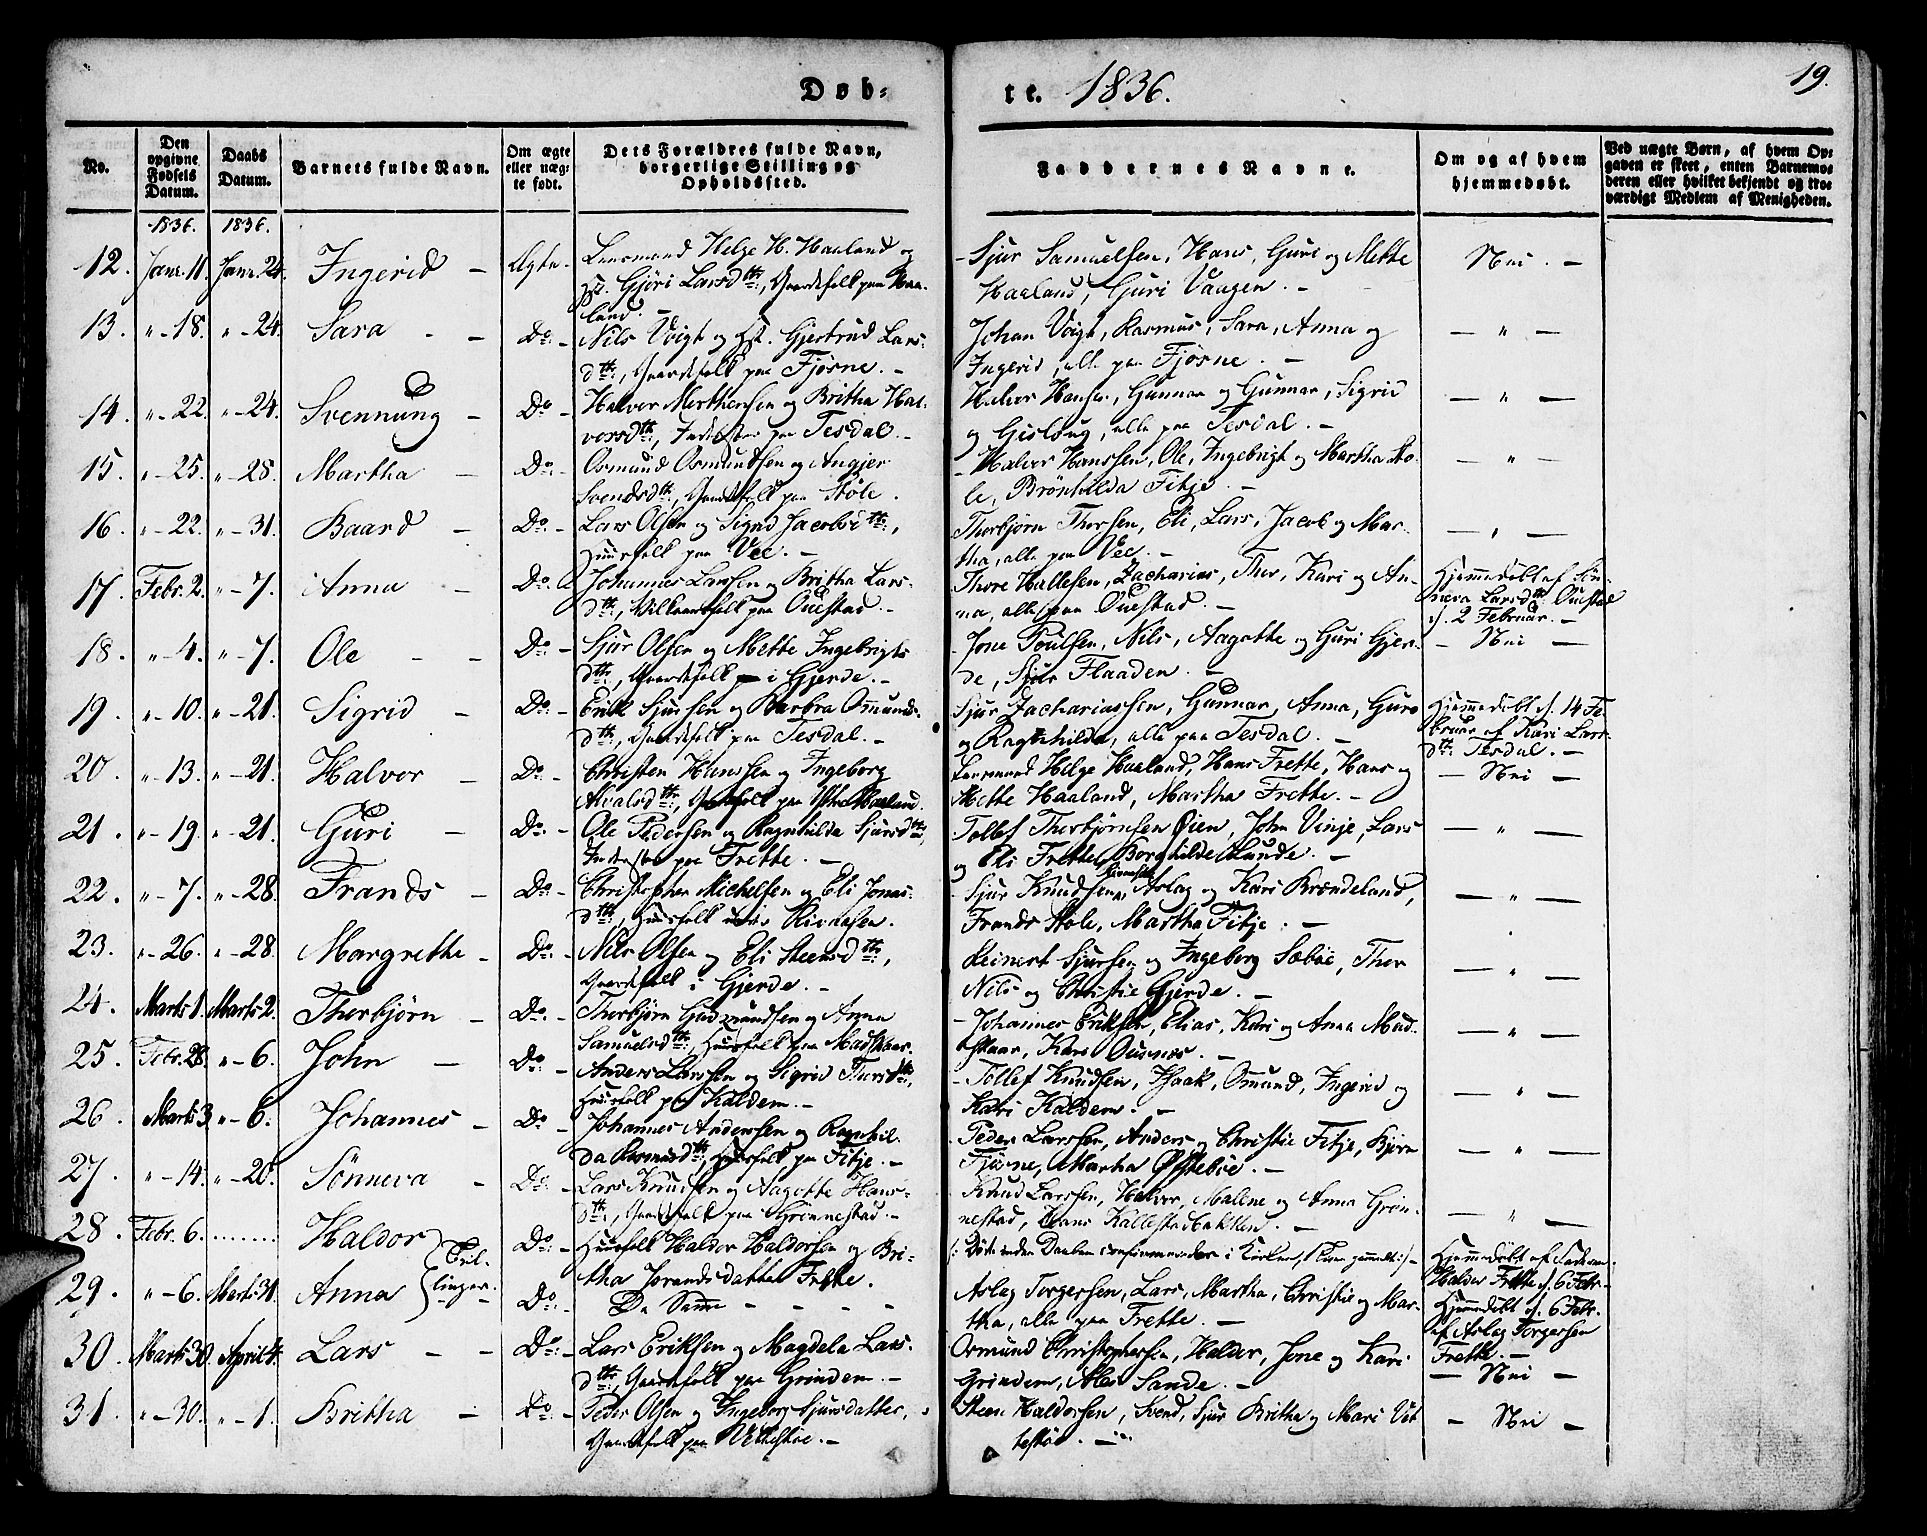 Døb-
te. 1836.
19.
No.
Den opgivne Fødsels Datum.
Daabs Datum.
Barnets fulde Navn.
Om ægte eller uægte født.
Dets Forældres fulde Navn, borgerlige Stilling og Opholdssted.
Faddernes Navne.
Om og af hvem hjemmedøbt.
Ved uægte Børn, af hvem Opgaven er skeet, enten Barnemoderen eller hvilket bekjendt og troværdigt Medlem af Menigheden.
1836. 1836.
12. Janr. 11. Janr. 24. Ingerid - Ægte - Lensmand Helge H. Haaland og
Gjøri Larsdtr:, Gaardsfolk paa Haa-
land. -
- Sjur Samuelsen, Hans, Guri og Mette
Haaland, Guri Vaagen. -
Nei. -
13. " - 18. " - 24. Sara - - Do: - Nils Voigt og Gjertrud Lars-
dtr:, Gaardsfolk paa Fjøsne. -
Johan Voigt, Rasmus, Sara, Anna og
Ingerid, alle paa Fjøsne. -
- " -
14. " - 22. " - 24. Svennung - Do - Halvor Morthensen og Britha Hal-
vorsdtr:, paa Tesdal. -
Halvor Hansen, Gunnar og Gunnar, Sigrid
og Gislaug, alle paa Tesdal. -
- " -
15. " - 25. " - 28. Martha - Do: - Osmund Osmundsen og Angjer
Svendsdtr:, Gaardsfolk paa Støle.
- Halvor Hanssen, Ole, Ingebrigt og Martha Sto-
le, Brønhilda Fitje. -
- " -
16. " - 22. " - 31. Baard - Do: - Lars Olsen og Sigrid Jacobsdtr:,
Huusfolk paa Vee. -
Thorbjørn Thorsen, Eli, Lars, Jacob og Mar-
tha, alle paa Vee. -
- " -
17. Febr. 2. " - 7. Anna - Do: Johannes Larssen og Britha Lars-
dtr:, Vilkaarsfolk paa Øuestad. -
Thore Hallesen, Zacharias, Thor, Kari og An-
na, alle paa Øuestad. -
Hjemmedøbt af Søn-
neva Larsdtr: Øuestad
d. 2 Februar. -
18. " - 4. " - 7. Ole - - Do: - Sjur Olsen og Mette Ingebrigts
dtr:, Gaardsfolk i Gjerde. -
- Jone Poulsen, Nils, Aagothe og Guri Gjer-
de, Sjur Flaaden. -
- Nei -
19. " - 10. " - 21. Sigrid - Do: - Erik Sjurssen og Barbra Osmunds-
dtr:, Gaardsfolk paa Tesdal. -
Sjur Zachariassen, Gunnar, Anna, Guro
og Ragnhilda, alle paa Tesdal. -
Hjemmedøbt d. 14 Fe-
bruar af Kari Lars-
dtr: Tesdal. -
20. " - 13. " - 21. Halvor - Do: - Christen Hanssen og Ingeborg
Alvaldsdtr:, Gaardsfolk paa Haaland.
Lensmand Helge Haaland, Hans Frette, Hans og
Mette Haaland, Martha Frette. -
- Nei -
21. " - 19. " - 21. Guri - Do: - Ole Pedersen og Ragnhilda Sjursdtr:,
paa Frette. -
Tollef Thorbjørnsen Øien, John Vinje, Lars
og Eli Frette, Borghilde Lunde. -
- " -
22. " - 7. " - 28. Frands - Do - Christopher Michelsen og Eli Jonas-
dtr:, Huusfolk Rivenesen.
- Sjur Knudsen, Aslag og Kari Brændeland,
Frands Stole, Martha Fitje. -
- " -
23. " - 26. " - 28. Margrethe - Do: - Nils Olsen og Eli Steensdtr:,
Gaardsfolk i Gjerde. -
Reinert Sjursen og Ingeborg Sæbøe, Thor
Nils og Christie Gjerde. -
- " -
24. Marts 1. Marts 2. Thorbjørn - Do: - Thorbjørn Gudmundsen og Anna
Samuelsdtr:, Huusfolk paa Madskaar.
- Johannes Eriksen, Elias, Kari og Anna Mad-
skaar, Kari Ousnæs. -
- " -
25. Febr. 28. " - 6. John - Do: - Anders Larssen og Sigrid Thorsdtr:,
Huusfolk paa Kaldem. -
- Tollef Knudsen, Isaak, Osmund, Ingerid og
Kari Kaldem. -
- " -
26. Marts 3. " - 6. Johannes - Do: - Johannes Andersen og Ragnhil-
da Rasmusdtr:, Huusfolk paa Fitje. -
Peder Larssen, Anders og Christie Fitje, Bjørn
Fjøsne, Martha Østebøe. -
- " -
27. " - 14. " - 20. Sønneva - Do: - Lars Knudsen og Aagothe Hans-
dtr:, Gaardsfolk paa Grønnestad. -
Knud Larssen, Halvor, Malene og Anna Grøn-
nestad, Hans Kallestadbakken. -
- " -
28. Febr. 6. ........ Haldor Do: - Huusfolk Haldor Haldorsen og Bri-
tha Jorandsdatter Frette.
Tvil-
linger.
Hjemmedøbt af Faderen
Haldor Frette d. 6 Febr.
29. " - 6. Marts 31. Anna Do: - De Samme - - - -
Aslag Torgersen, Lars, Martha, Christie og Mar-
tha, alle paa Frette. -
Hjemmedøbt d. 6 Febr.
af Aslag Torgersen
Frette. -
30. Marts 30. April 4. Lars - - Do: - Lars Eriksen og Magdela Lars-
dtr:, Gaardsfolk paa Grindem. -
Osmund Christophersen, Haldor, Jone og Kari
Grindem, Sande. -
- Nei -
31. " - 30. " - 1. Britha - Do: - Peder Olsen og Ingeborg Sjursdatter,
Gaardsfolk paa Vettestøe. -
Steen Haldorsen, Svend, Sjur Britha og Mari Vet
testøe. -
- Nei -